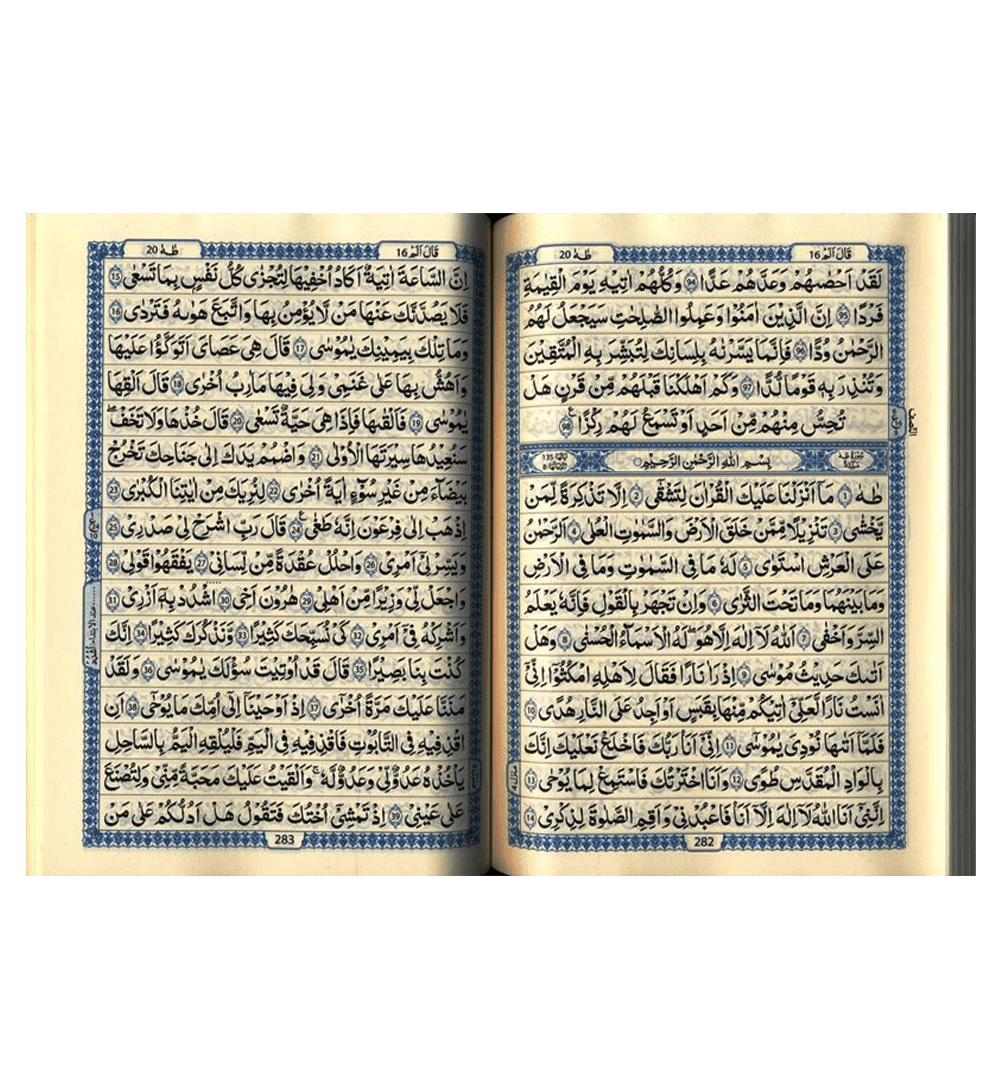 قَالَ اَلَمْ 16
طٰهٰ 20
لَقَدْ اَحْصٰىهُمْ وَعَدَّهُمْ عَدًّا 94 وَكُلُّهُمْ اٰتِيْهِ يَوْمَ الْقِيٰمَةِ
فَرْدًا 95 اِنَّ الَّذِيْنَ اٰمَنُوْا وَعَمِلُوا الصّٰلِحٰتِ سَيَجْعَلُ لَهُمُ
الرَّحْمٰنُ وُدًّا 96 فَاِنَّمَا يَسَّرْنٰهُ بِلِسَانِكَ لِتُبَشِّرَ بِهِ الْمُتَّقِيْنَ
وَتُنْذِرَ بِهٖ قَوْمًا لُّدًّا 97 وَكَمْ اَهْلَكْنَا قَبْلَهُمْ مِّنْ قَرْنٍ هَلْ
تُحِسُّ مِنْهُمْ مِّنْ اَحَدٍ اَوْ تَسْمَعُ لَهُمْ رِكْزًا 98
بِسْمِ اللهِ الرَّحْمٰنِ الرَّحِيْمِ
طٰهٰ 1 مَا اَنْزَلْنَا عَلَيْكَ الْقُرْاٰنَ لِتَشْقٰى 2 اِلَّا تَذْكِرَةً لِّمَنْ
يَّخْشٰى 3 تَنْزِيْلًا مِّمَّنْ خَلَقَ الْاَرْضَ وَالسَّمٰوٰتِ الْعُلٰى 4 اَلرَّحْمٰنُ
عَلَى الْعَرْشِ اسْتَوٰى 5 لَهٗ مَا فِى السَّمٰوٰتِ وَمَا فِى الْاَرْضِ
وَمَا بَيْنَهُمَا وَمَا تَحْتَ الثَّرٰى 6 وَاِنْ تَجْهَرْ بِالْقَوْلِ فَاِنَّهٗ يَعْلَمُ
السِّرَّ وَاَخْفٰى 7 اَللهُ لَا اِلٰهَ اِلَّا هُوَ لَهُ الْاَسْمَاءُ الْحُسْنٰى 8 وَهَلْ
اَتٰىكَ حَدِيْثُ مُوْسٰى 9 اِذْ رَاٰ نَارًا فَقَالَ لِاَهْلِهِ امْكُثُوْا اِنِّى
اٰنَسْتُ نَارًا لَّعَلِّى اٰتِيْكُمْ مِّنْهَا بِقَبَسٍ اَوْ اَجِدُ عَلَى النَّارِ هُدًى 10
فَلَمَّا اَتٰىهَا نُوْدِىَ يٰمُوْسٰى 11 اِنِّى اَنَا رَبُّكَ فَاخْلَعْ نَعْلَيْكَ اِنَّكَ
بِالْوَادِ الْمُقَدَّسِ طُوًى 12 وَاَنَا اخْتَرْتُكَ فَاسْتَمِعْ لِمَا يُوْحٰى 13
اِنَّنِى اَنَا اللهُ لَا اِلٰهَ اِلَّا اَنَا فَاعْبُدْنِى وَاَقِمِ الصَّلٰوةَ لِذِكْرِى 14
282
قَالَ اَلَمْ 16
طٰهٰ 20
اِنَّ السَّاعَةَ اٰتِيَةٌ اَكَادُ اُخْفِيْهَا لِتُجْزٰى كُلُّ نَفْسٍ بِمَا تَسْعٰى 15
فَلَا يَصُدَّنَّكَ عَنْهَا مَنْ لَّا يُؤْمِنُ بِهَا وَاتَّبَعَ هَوٰىهُ فَتَرْدٰى 16
وَمَا تِلْكَ بِيَمِيْنِكَ يٰمُوْسٰى 17 قَالَ هِىَ عَصَاىَ اَتَوَكَّؤُا عَلَيْهَا
وَاَهُشُّ بِهَا عَلٰى غَنَمِىْ وَلِىَ فِيْهَا مَاٰرِبُ اُخْرٰى 18 قَالَ اَلْقِهَا
يٰمُوْسٰى 19 فَاَلْقٰىهَا فَاِذَا هِىَ حَيَّةٌ تَسْعٰى 20 قَالَ خُذْهَا وَلَا تَخَفْ
سَنُعِيْدُهَا سِيْرَتَهَا الْاُوْلٰى 21 وَاضْمُمْ يَدَكَ اِلٰى جَنَاحِكَ تَخْرُجْ
بَيْضَاءَ مِنْ غَيْرِ سُوْءٍ اٰيَةً اُخْرٰى 22 لِنُرِيَكَ مِنْ اٰيٰتِنَا الْكُبْرٰى 23
اِذْهَبْ اِلٰى فِرْعَوْنَ اِنَّهٗ طَغٰى 24 قَالَ رَبِّ اشْرَحْ لِىْ صَدْرِىْ 25
وَيَسِّرْ لِىْ اَمْرِىْ 26 وَاحْلُلْ عُقْدَةً مِّنْ لِّسَانِىْ 27 يَفْقَهُوْا قَوْلِىْ 28
وَاجْعَلْ لِّىْ وَزِيْرًا مِّنْ اَهْلِىْ 29 هٰرُوْنَ اَخِى 30 اشْدُدْ بِهٖ اَزْرِىْ 31
وَاَشْرِكْهُ فِىْ اَمْرِىْ 32 كَىْ نُسَبِّحَكَ كَثِيْرًا 33 وَّنَذْكُرَكَ كَثِيْرًا 34 اِنَّكَ
كُنْتَ بِنَا بَصِيْرًا 35 قَالَ قَدْ اُوْتِيْتَ سُؤْلَكَ يٰمُوْسٰى 36 وَلَقَدْ
مَنَنَّا عَلَيْكَ مَرَّةً اُخْرٰى 37 اِذْ اَوْحَيْنَا اِلٰى اُمِّكَ مَا يُوْحٰى 38 اَنِ
اقْذِفِيْهِ فِى التَّابُوْتِ فَاقْذِفِيْهِ فِى الْيَمِّ فَلْيُلْقِهِ الْيَمُّ بِالسَّاحِلِ
يَاْخُذْهُ عَدُوٌّ لِّىْ وَعَدُوٌّ لَّهٗ وَاَلْقَيْتُ عَلَيْكَ مَحَبَّةً مِّنِّىْ وَلِتُصْنَعَ
عَلٰى عَيْنِىْ 39 اِذْ تَمْشِىْ اُخْتُكَ فَتَقُوْلُ هَلْ اَدُلُّكُمْ عَلٰى مَنْ
283